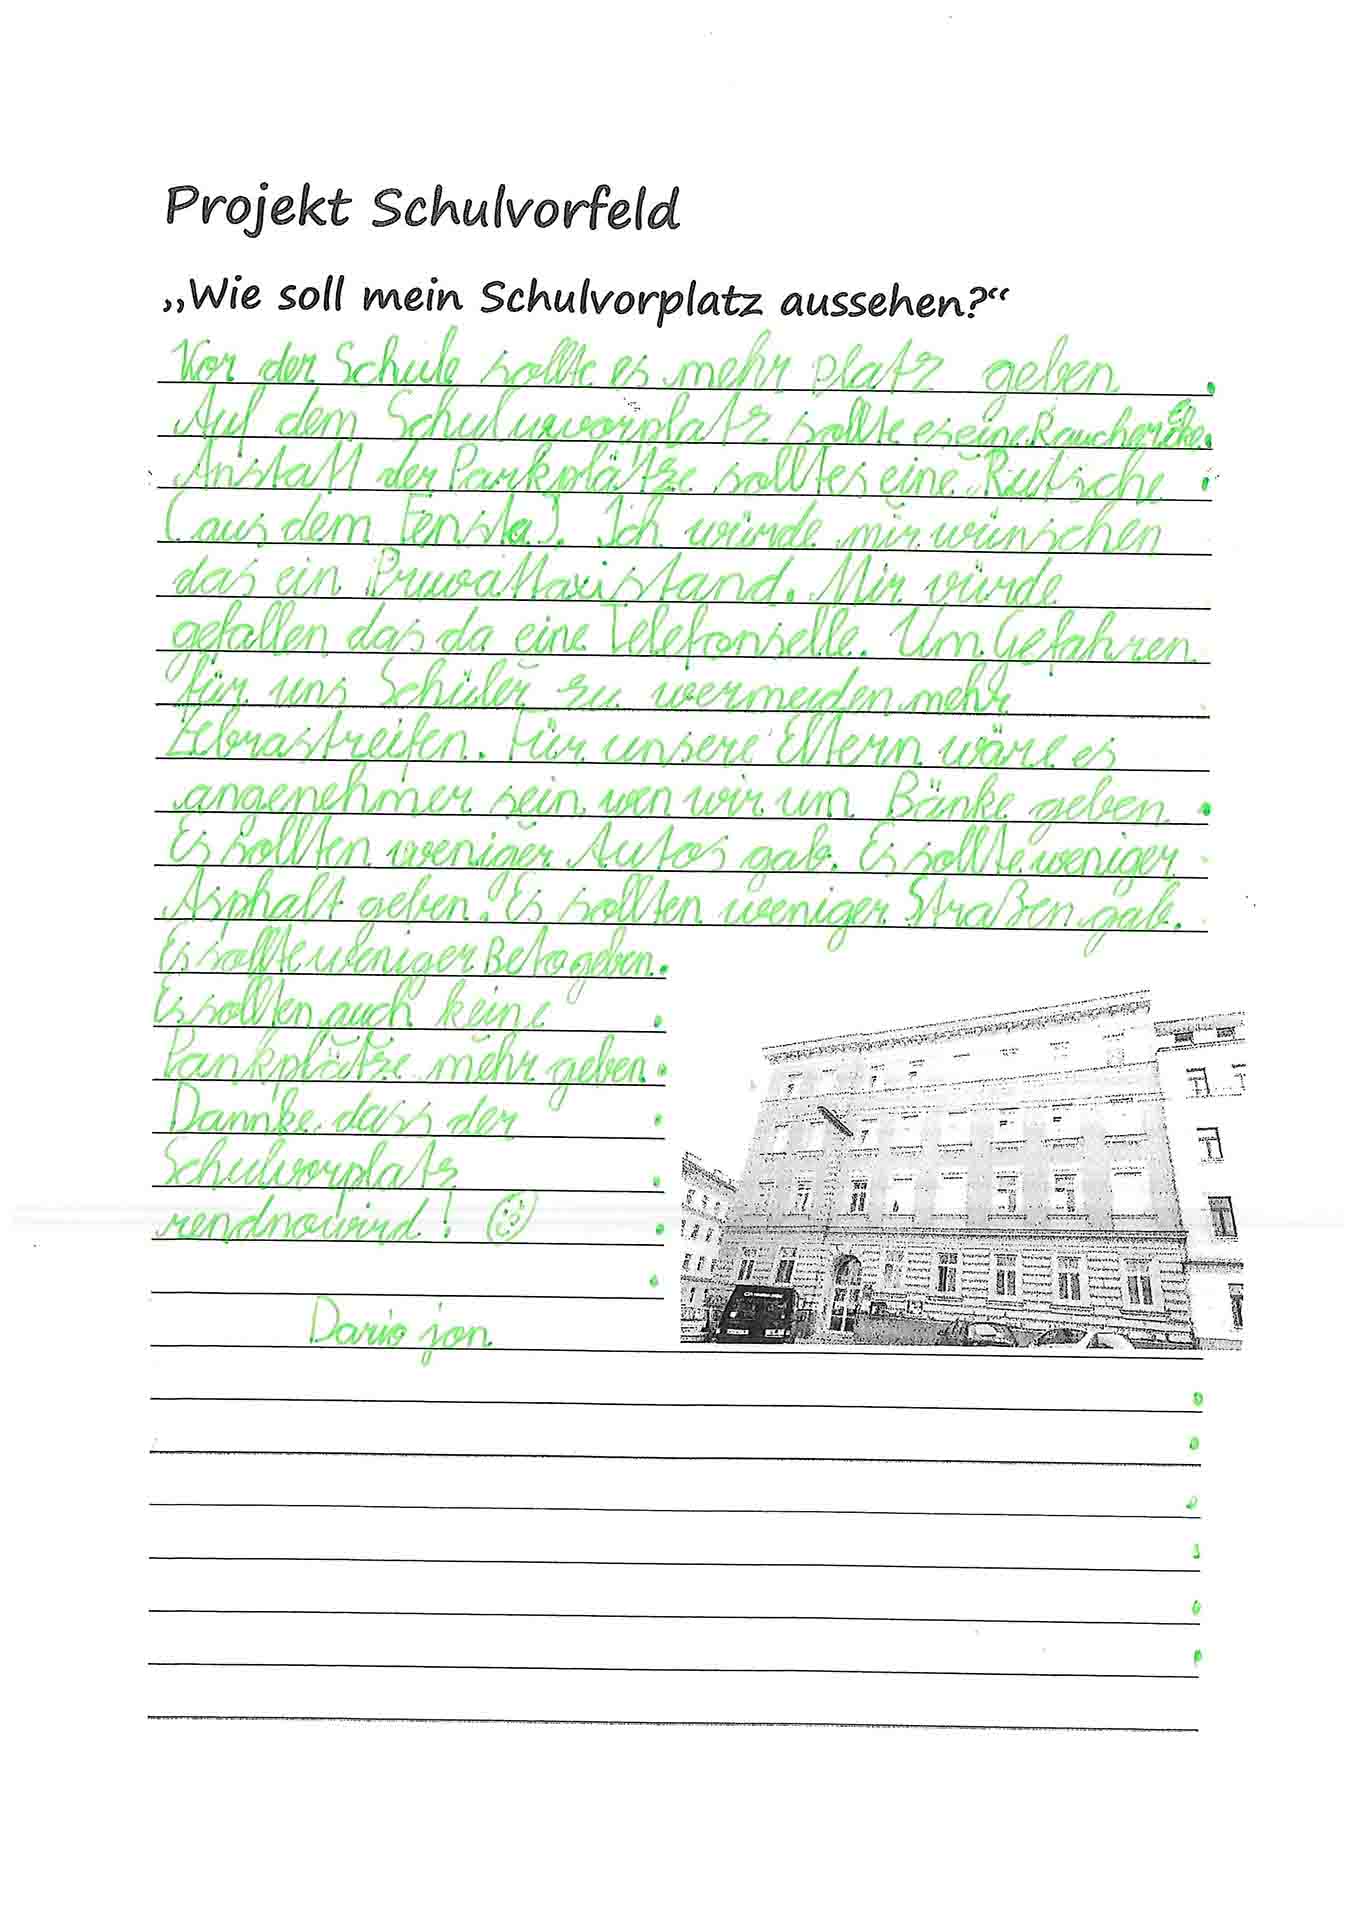 Projekt Schulvorfeld
„Wie soll mein Schulvorplatz aussehen?“
Vor der Schule sollte es mehr platz geben
Auf dem Schuluvorplatz sollte es eine Raucher Ecke.
Anstatt der Parkplätze solltes eine Rutsche
(aus dem Fensta). Ich würde mir wünschen
das ein Privattaxistand. Mir würde
gefallen das da eine Telefonselle. Um Gefahren
für uns Schüler zu vermeiden mehr
Zebrastreifen. Für unsere Eltern wäre es
angenehmer sein wen wir um Bänke geben
Es sollten weniger Autos gab. Es sollte weniger
Asphalt geben. Es sollten weniger Straßen gab.
Es sollte weniger Beto geben.
Es sollten auch keine
Parkplätze mehr geben
Dannke dass der
Schulvorplatz
rendnowird!
Dario jon